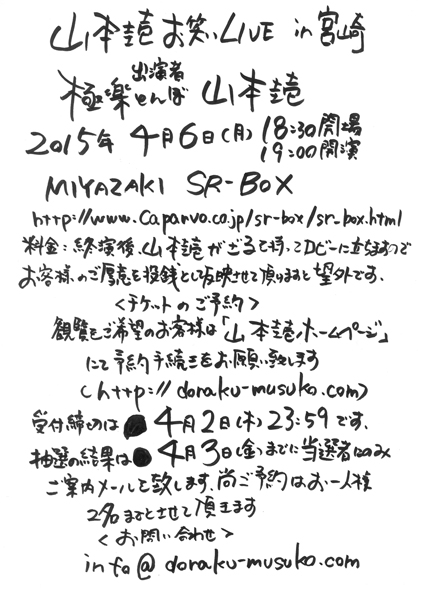 山本圭壱お笑いLIVE in 宮崎
出演者
極楽とんぼ 山本圭壱
2015年 4月6日(月) 18:30開場
19:00開演
MIYAZAKI SR-BOX
http://www.caparvo.co.jp/sr-box/sr-box.html
料金:終演後、山本圭壱がざるを持ってロビーに立ちますので
お客様のご厚意を投銭として反映させて頂けますと望外です、
<チケットのご予約>
観覧をご希望のお客様は「山本圭壱ホームページ」
にて予約手続きをお願い致します
(http://doraku-musuko.com)
受付締切は 4月2日(木)23:59です、
抽選の結果は 4月3日(金)までに当選者にのみ
ご案内メールを致します、尚ご予約はお一人様
2名までとさせて頂きます
<お問い合わせ>
info@doraku-musuko.com